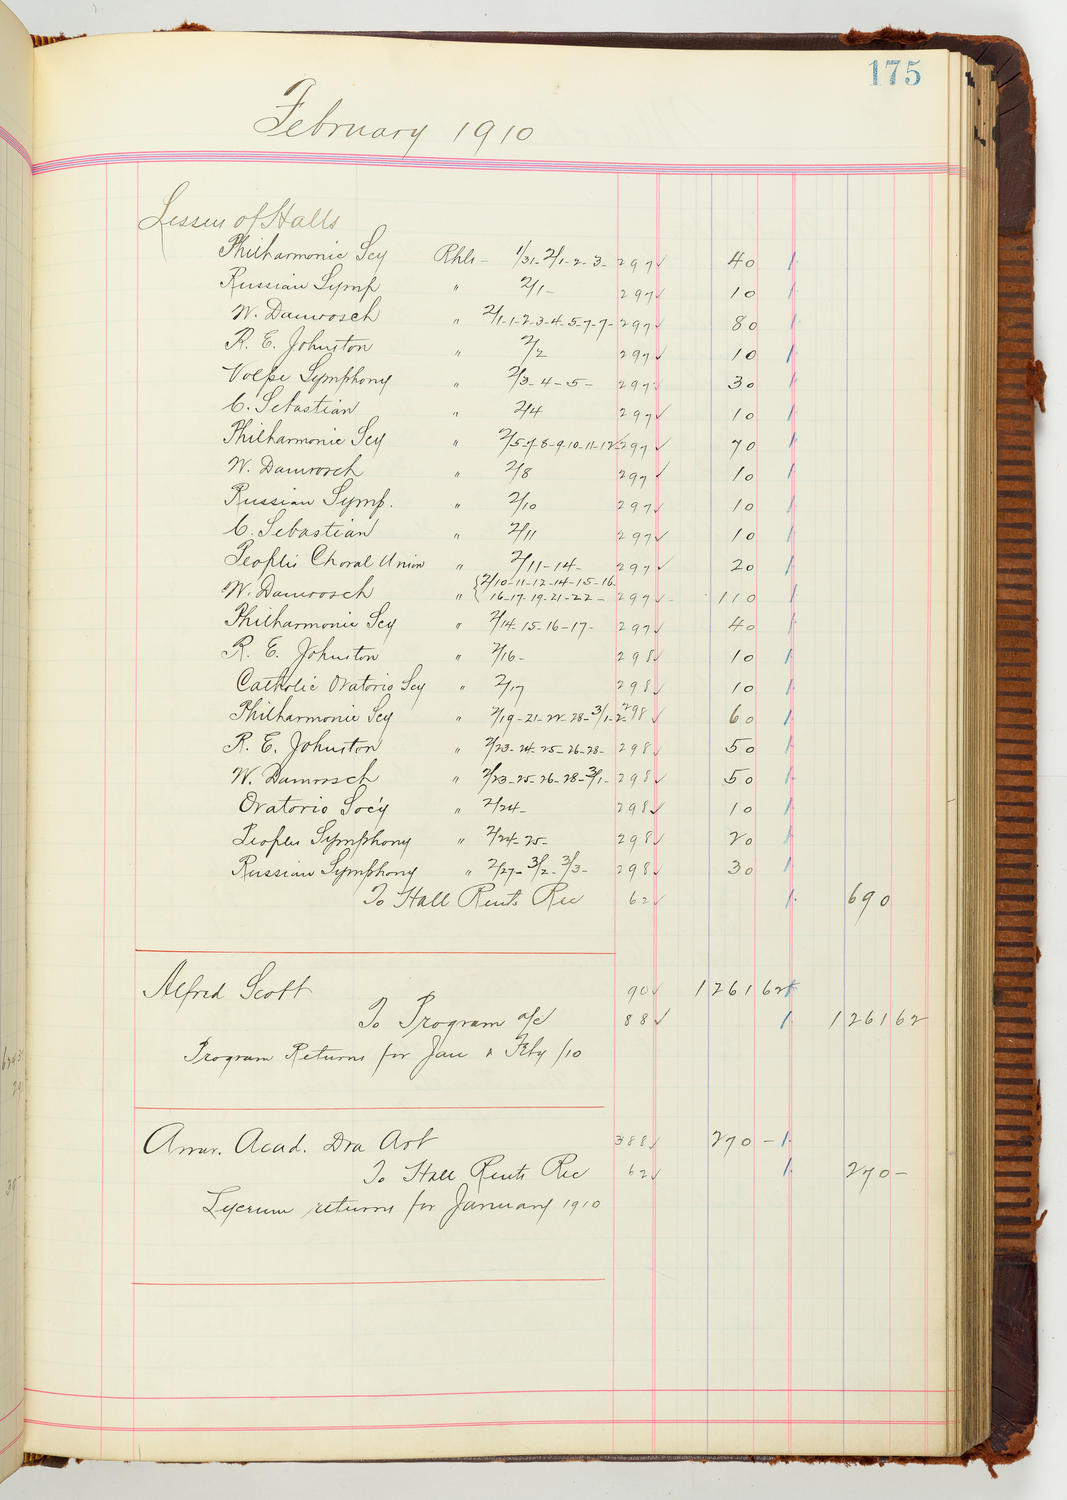 175
February 1910
Lessees of Halls
Philharmonic Scy Rhls - 1/31-2/1-2-3- 297 40
Russian Symp " 2/1- 297 10
W. Damrosch " 2/1-1-2-3-4-5-7-7- 297 80
R. E. Johnston " 2/2 297 10
Volpe Symphony " 2/3-4-5- 297 30
C. Sebastian " 2/4 297 10
Philharmonic Scy " 2/5-7-8-9-10-11-12- 297 70
W. Damrosch " 2/8 297 10
Russian Symp. " 2/10 297 10
C. Sebastian " 2/11 297 10
Peoples Choral Union " 2/11-14- 297 20
W. Damrosch " { 2/10-11-12-14-15-16
16-17-19-21-22- 297 110
Philharmonic Scy " 2/14-15-16-17- 297 40
R. E. Johnston " 2/16- 298 10
Catholic Oratorio Scy " 2/17 298 10
Philharmonic Scy " 2/19-21-22-28-3/1-2- 298 60
R. E. Johnston " 2/23-24-25-26-28- 298 50
W. Damrosch " 2/23-25-26-28-3/1- 298 50
Oratorio Soc'y " 2/24- 298 10
Peoples Symphony " 2/24-25- 298 20
Russian Symphony " 2/27-3/2-3/3- 298 30
To Hall Rents Rec 62 690
Alfred Scott 90 1261 62
To Program a/c 88 1261 62
Program Returns for Jan & Feby /10
Amer. Acad. Dra Art 388 270 -
To Hall Rents Rec 62 270 -
Lyceum returns for January 1910